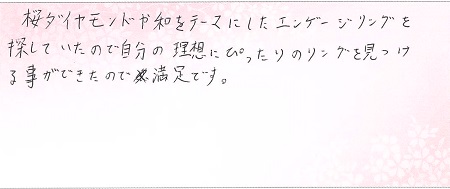 桜ダイヤモンドや和をテーマにしたエンゲージリングを
探していたので自分の理想にぴったりのリングを見つけ
る事ができたので満足です。